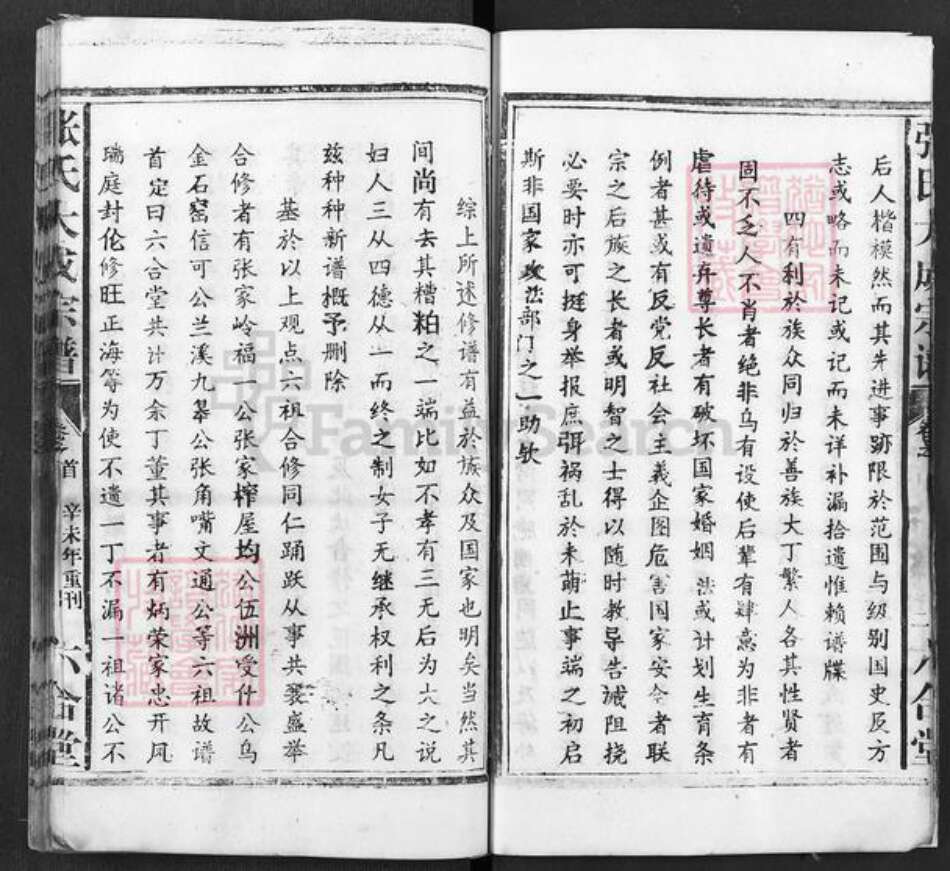 后人楷模然而其先进事跡限於范围与级别国史及方
志或略而未记或记而未详补漏拾遗惟赖谱牒
四有利於族众同归於善族大丁繁人各其性贤者
固不乏人不肖者绝非乌有设使后辈有肆意为非者有
虐待或遗弃尊长者有破坏国家婚姻法或计划生育条
例者甚或有反党反社会主義企图危害国家安全者联
宗之后族之长者或明智之士得以随时教导告诫阻挠
必要时亦可挺身举报庶弭祸乱於未萌止事端之初启
斯非国家政法部门之一助欤
综上所述修谱有益於族众及国家也明矣当然其
间尚有去其糟粕之一端比如不孝有三无后为大之说
妇人三从四德从一而终之制女子无继承权利之条凡
兹种种新谱概予删除
基於以上观点六祖合修同仁踊跃从事共襄盛举
合修者有张家岭福一公张家榨屋均公伍洲受什公乌
金石窑信可公兰溪九皋公张角嘴文通公等六祖故谱
首定曰六合堂共计万余丁董其事者有炳荣家忠开凤
瑞庭封伦修旺正海等为使不遗一丁不漏一祖诸公不
张氏大成宗谱
卷之首
辛未年重刊
六合堂
FamilySearch